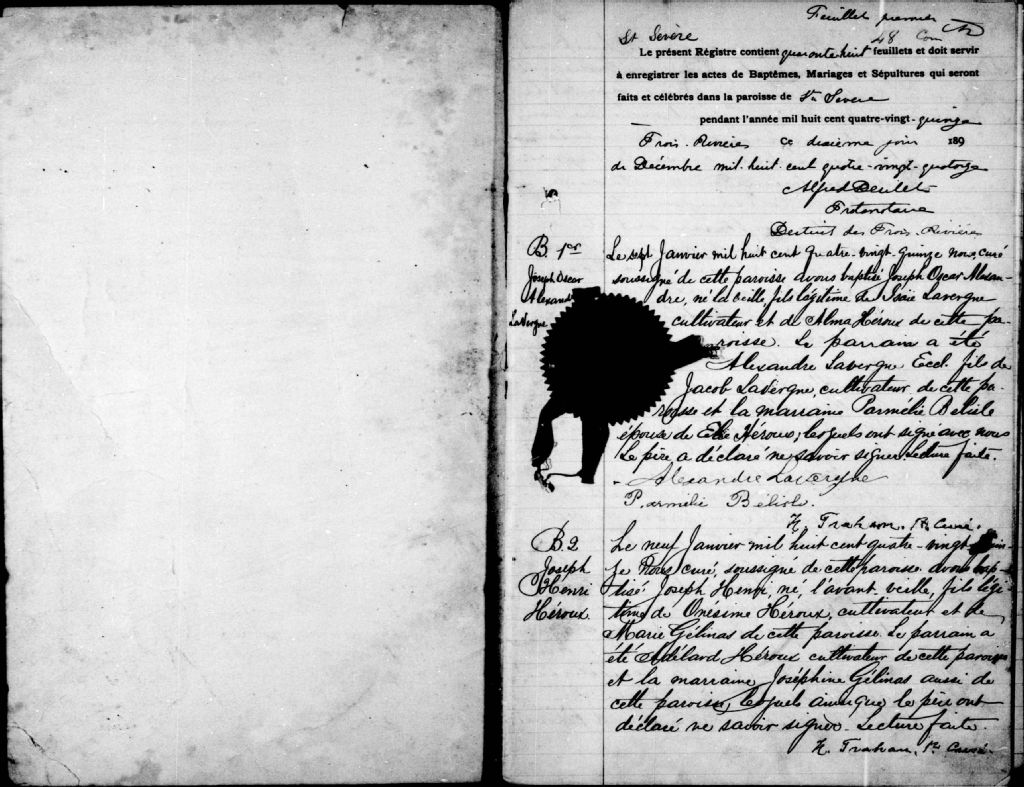 Feuillet premier
St Sevère 48
Le présent Régistre contient quarante huit feuillets et doit servir
à enregistrer les actes de Baptêmes, Mariages et Sépultures qui seront
faits et célébrés dans la paroisse de Severe
pendant l'année mil huit cent quatre-vingt-quinze
Trois-Rivières Ce dixième jour 189
de Décembre mil-huit-cent quatre-vingt-quatorze
Alfred Desilets
Protonotaire
District des Trois-Rivières
B. 1er
Joseph Oscar
Alexandre
Lavergne
Le sept Janvier mil huit cent quatre-vingt-quinze nous, curé
soussigné de cette paroisse avons baptisé Joseph Oscar Alexan-
dre, né la veille, fils légitime de Isaïe Lavergne
cultivateur et de Alma Héroux de cette pa-
roisse. Le parrain a été
Alexandre Lavergne Eccl. fils de
Jacob Lavergne, cultivateur de cette pa-
roisse et la marraine Parmélie Belisle
épouse de Elie Héroux, lesquels ont signé avec nous
Le père a déclaré ne savoir signer. Lecture faite.
Alexandre Lavergne
Parmélie Bélisle
H. Trahan, Ptre Curé.
B. 2
Joseph
Henri
Héroux.
Le neuf Janvier mil huit cent quatre-vingt-quin-
ze Nous, curé, soussigné de cette paroisse avons bap-
tisé Joseph Henri, né, l'avant veille, fils légi-
time de Onesime Héroux, cultivateur et de
Marie Gélinas de cette paroisse. Le parrain a
été Adélard Héroux cultivateur de cette paroisse
et la marraine Joséphine Gélinas aussi de
cette paroisse, lesquels ainsi que le père ont
déclaré ne savoir signer. Lecture faite.
H. Trahan, Ptre Curé.